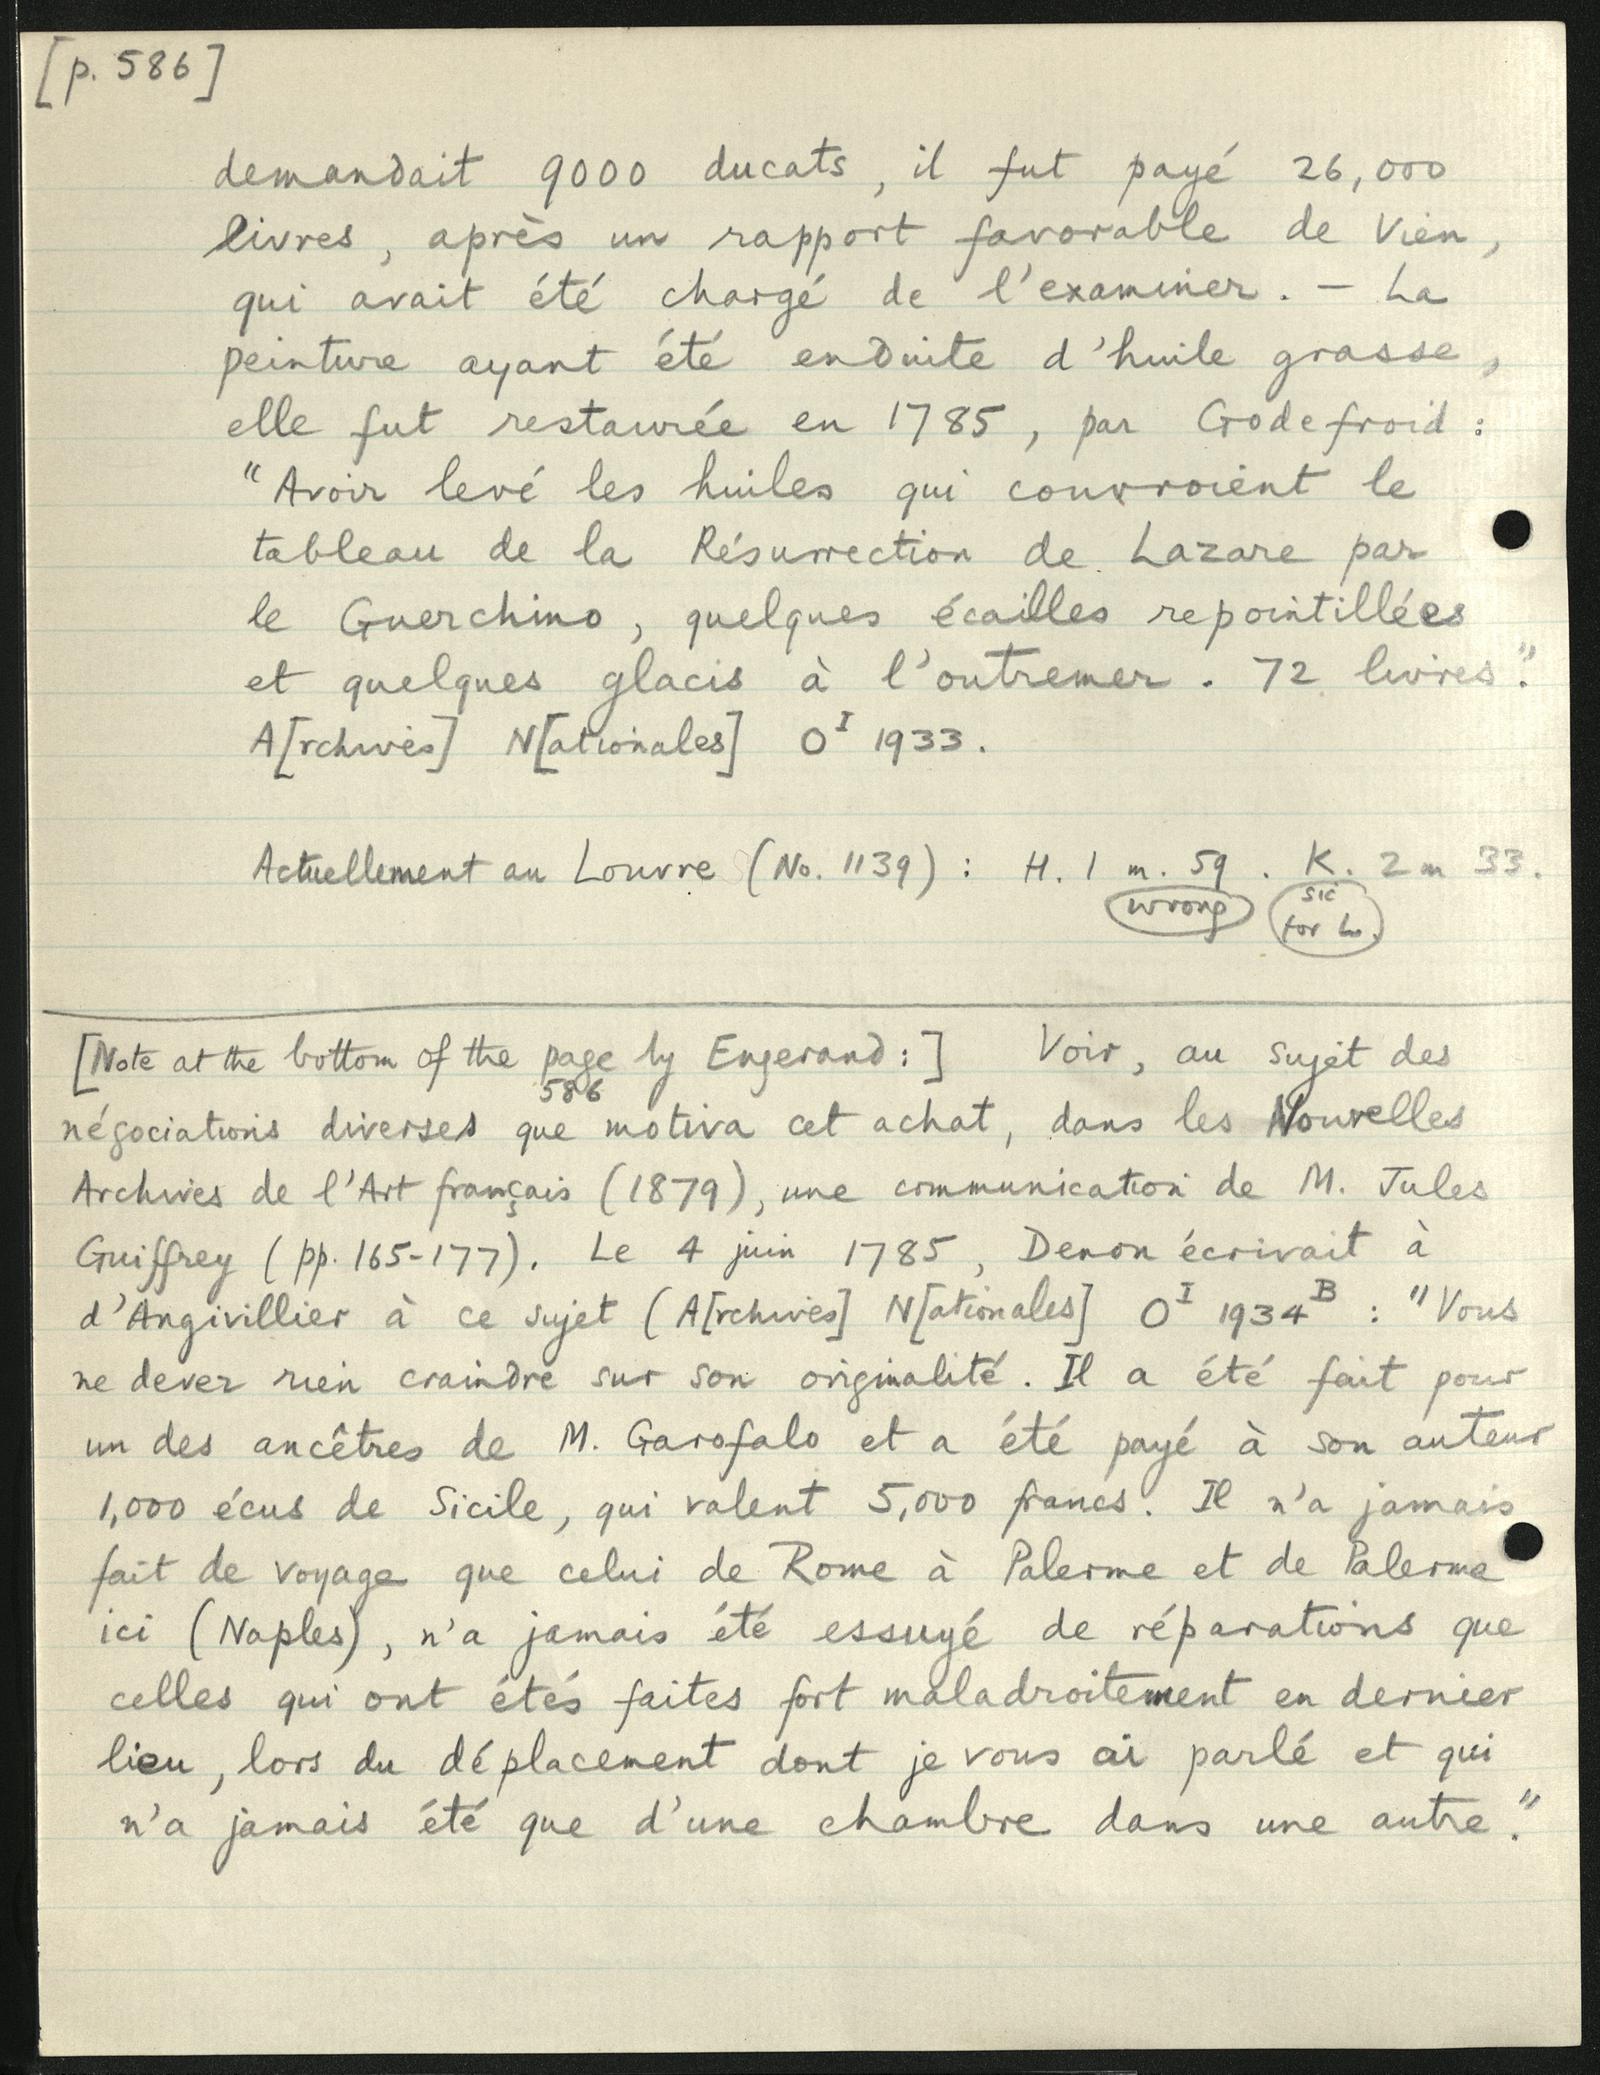 [p. 586]
demandait 9000 ducats, il fut payé 26,000
livres, après un rapport favorable de Vien,
qui avait été chargé de l'examiner. — La
peinture ayant été enduite d'huile grasse,
elle fut restaurée en 1785, par Godefroid :
"Avoir levé les huiles qui couvroient le
tableau de la Résurrection de Lazare par
le Guerchino, quelques écailles repointillées
et quelques glacis à l'outremer. 72 livres."
A[rchives] N[ationales] O^I 1933.
Actuellement au Louvre (No. 1139) : H. 1 m. 59. K. 2 m 33.
wrong sic
for L.
[Note at the bottom of the page by Engerand:] Voir, au sujet des
586
négociations diverses que motiva cet achat, dans les Nouvelles
Archives de l'Art français (1879), une communication de M. Jules
Guiffrey (pp. 165-177). Le 4 juin 1785, Denon écrivait à
d'Angivillier à ce sujet (A[rchives] N[ationales] O^I 1934^B : "Vous
ne devez rien craindre sur son originalité. Il a été fait pour
un des ancêtres de M. Garofalo et a été payé à son auteur
1,000 écus de Sicile, qui valent 5,000 francs. Il n'a jamais
fait de voyage que celui de Rome à Palerme et de Palerme
ici (Naples), n'a jamais été essuyé de réparations que
celles qui ont étés faites fort maladroitement en dernier
lieu, lors du déplacement dont je vous ai parlé et qui
n'a jamais été que d'une chambre dans une autre."